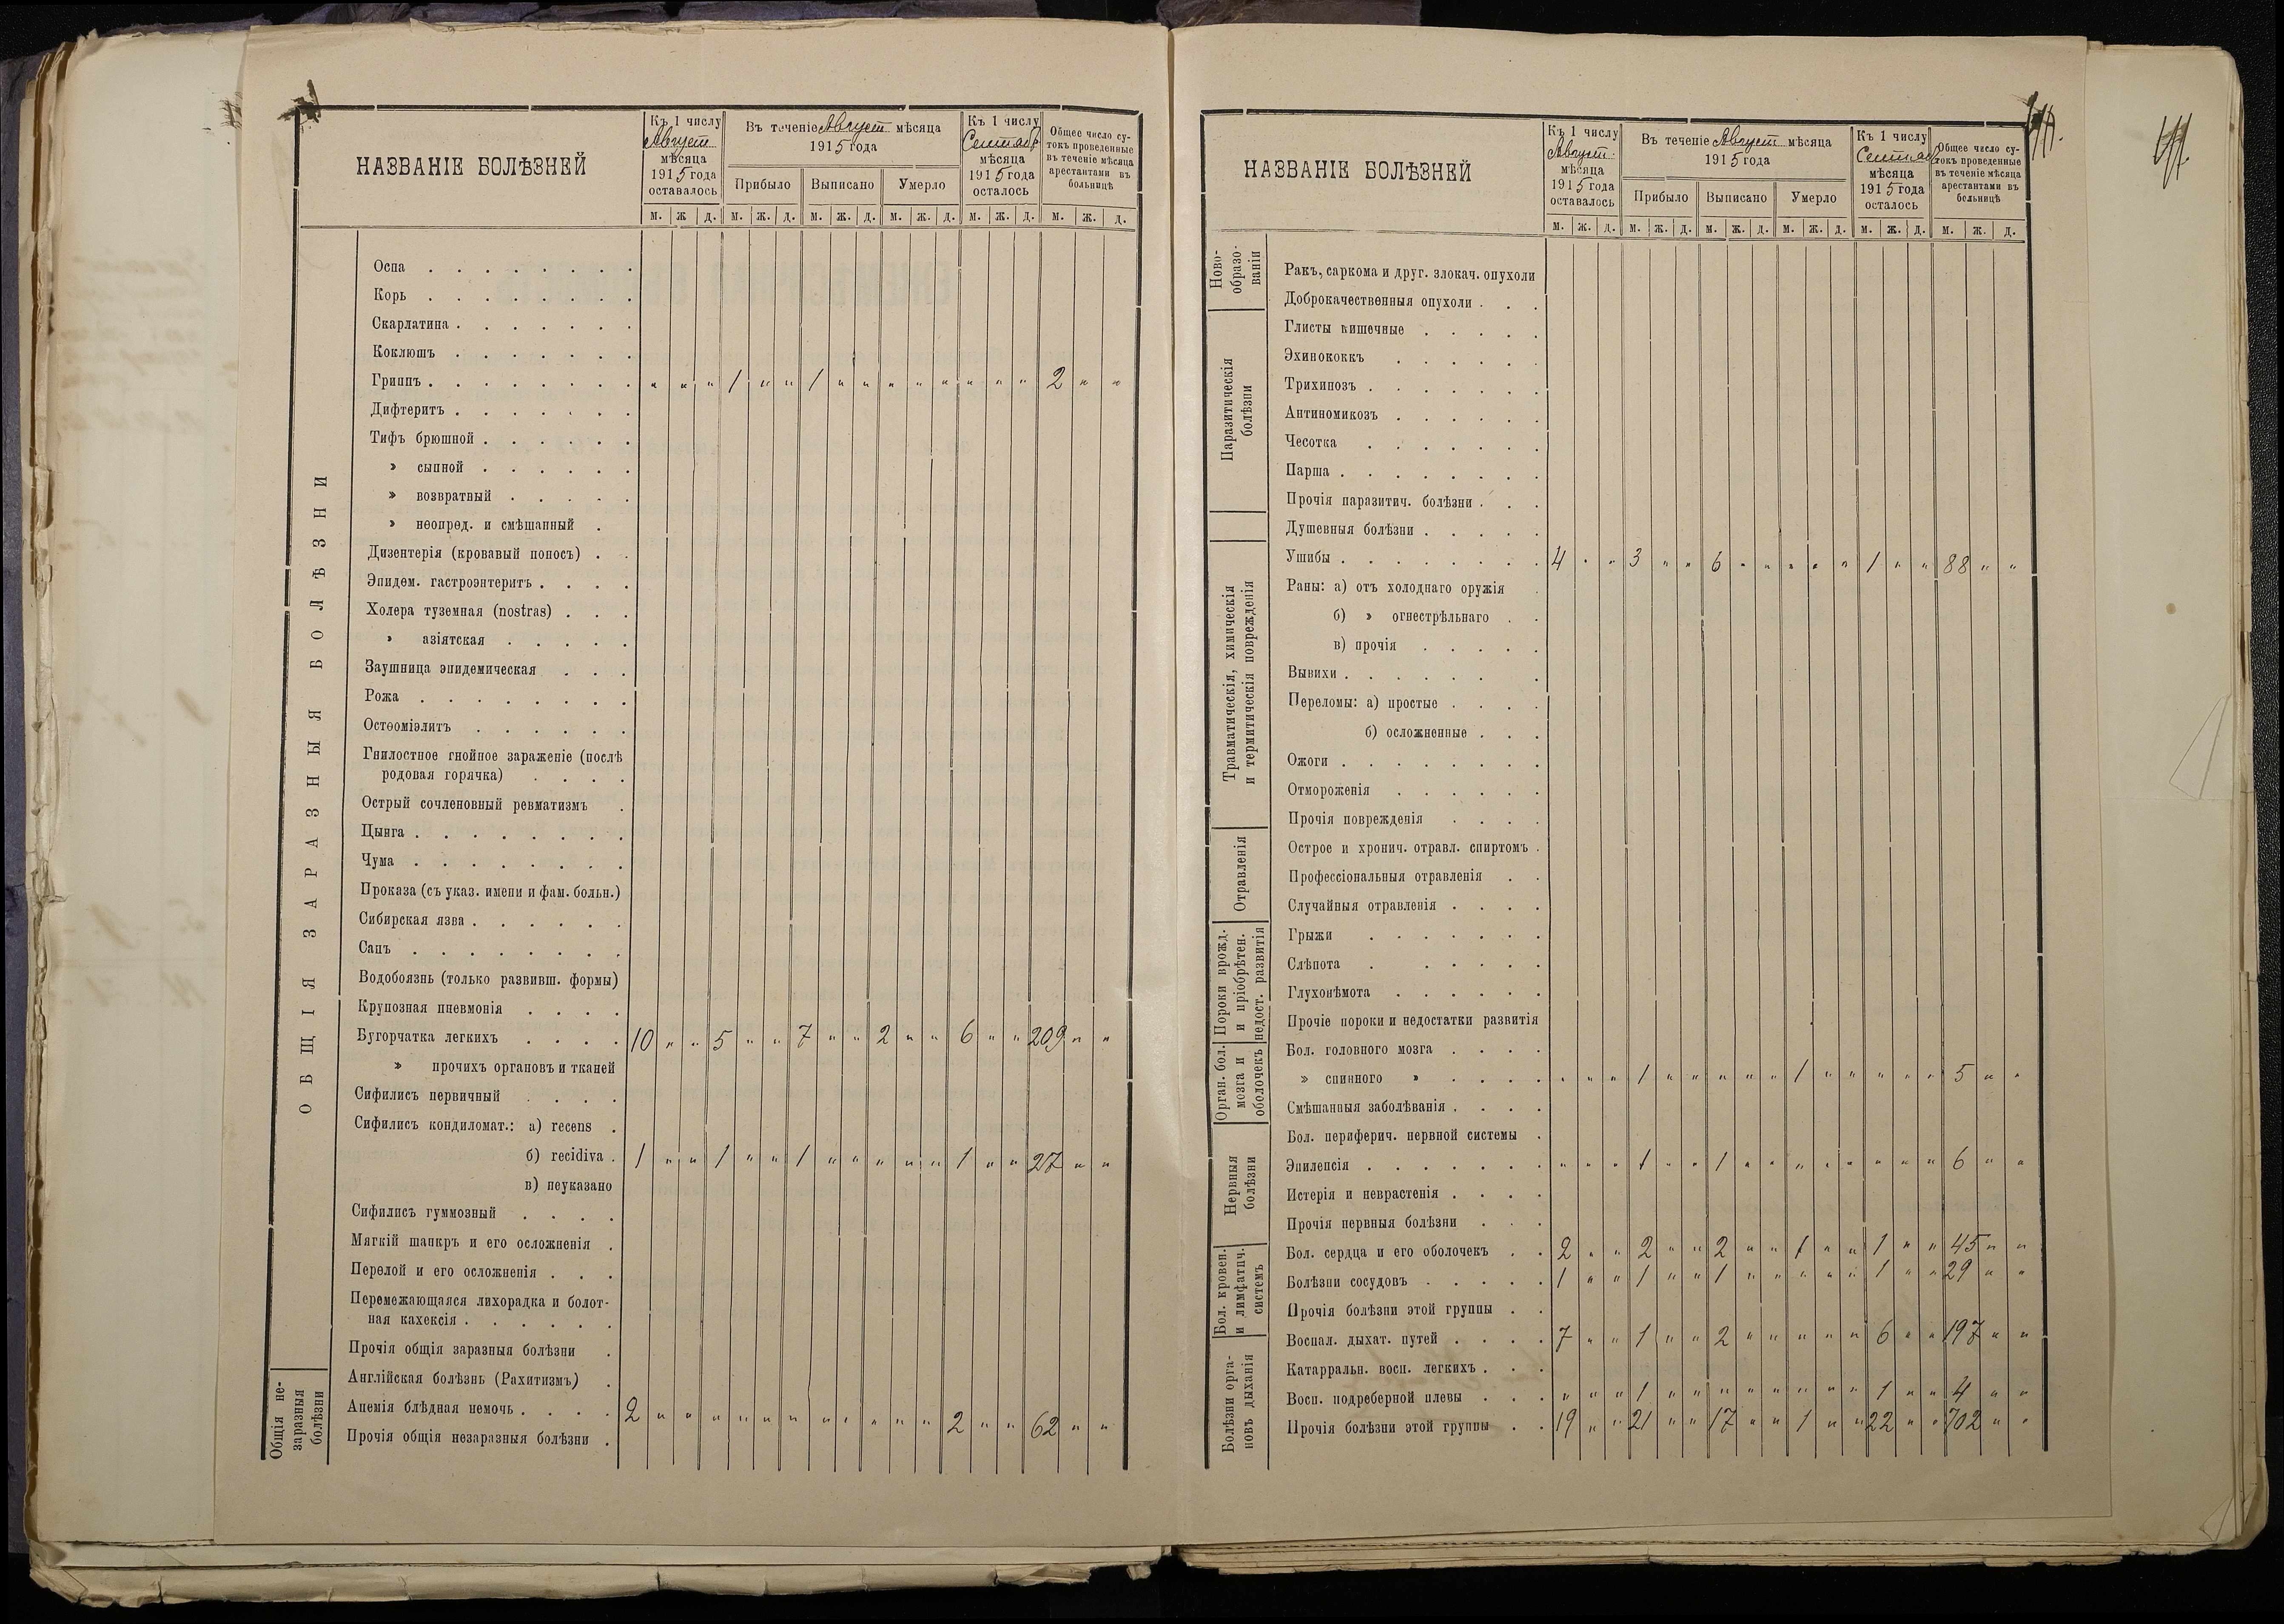 НАЗВАНІЕ БОЛѢЗНЕЙ
Къ 1 числу
Августъ
мѣсяца
1915 года
оставалось
Въ теченіе Августъ мѣсяца
1915 года
Прибыло Выписано Умерло
Къ 1 числу
Сентяб
мѣсяца
1915 года
осталось
Общее число су-
токъ проведенные
въ теченіе мѣсяца
арестантами въ
больницѣ
м. ж д. м. ж. д. м. ж. д. м. ж. д. м. ж. д. м. ж. д.
ОБЩІЯ ЗАРАЗНЫЯ БОЛѢЗНИ
Оспа
Корь
Скарлатина
Коклюшъ
Гриппъ " " " 1 " " 1 " " " " " " " " 2 " "
Дифтеритъ
Тифъ брюшной
» сыпной
» возвратный
» неопред. и смѣшанный
Дизентерія (кровавый поносъ)
Эпидем. гастроэнтеритъ
Холера туземная (nostras)
» азіятская
Заушница эпидемическая
Рожа
Остеоміэлитъ
Гнилостное гнойное зараженіе (послѣ
родовая горячка)
Острый сочленовный ревматизмъ
Цынга
Чума
Проказа (съ указ. имени и фам. больн.)
Сибирская язва
Сапъ
Водобоязнь (только развивш. формы)
Крупозная пневмонія
Бугорчатка легкихъ 10 " " 5 " " 7 " " 2 " " 6 " " 209 " "
» прочихъ органовъ и тканей
Сифилисъ первичный
Сифилисъ кондиломат.: а) recens
б) recidiva 1 " " 1 " " 1 " " " " " 1 " " 27 " "
в) неуказано
Сифилисъ гуммозный
Мягкій шанкръ и его осложненія
Перелой и его осложненія
Перемежающаяся лихорадка и болот-
ная кахексія
Прочія общія заразныя болѣзни
Общія не-
заразныя
болѣзни
Англійская болѣзнь (Рахитизмъ)
Анемія блѣдная немочь 2 " " " " " " " " " " " 2 " " 62 " "
Прочія общія незаразныя болѣзни
НАЗВАНІЕ БОЛѢЗНЕЙ
Къ 1 числу
Августъ
мѣсяца
1915 года
оставалось
Въ теченіе Августъ мѣсяца
1915 года
Прибыло Выписано Умерло
Къ 1 числу
Сентяб
мѣсяца
1915 года
осталось
Общее число су-
токъ проведенные
въ теченіе мѣсяца
арестантами въ
больницѣ
м. ж. д. м. ж. д. м. ж. д. м. ж. д. м. ж. д. м. ж. д.
Ново-
образо-
ванія
Ракъ, саркома и друг. злокач. опухоли
Доброкачественныя опухоли
Паразитическія
болѣзни
Глисты кишечные
Эхинококкъ
Трихинозъ
Антиномикозъ
Чесотка
Парша
Прочія паразитич. болѣзни
Душевныя болѣзни
Травматическія, химическія
и термитическія поврежденія
Ушибы 4 " " 3 " " 6 " " " " " 1 " " 88 " "
Раны: а) отъ холоднаго оружія
б) » огнестрѣльнаго
в) прочія
Вывихи
Переломы: а) простые
б) осложненные
Ожоги
Отмороженія
Прочія поврежденія
Отравленія
Острое и хронич. отравл. спиртомъ
Профессіональныя отравленія
Случайныя отравленія
Пороки врожд.
и пріобрѣтен.
недост. развитія
Грыжи
Слѣпота
Глухонѣмота
Прочіе пороки и недостатки развитія
Орган. бол.
мозга и
оболочекъ
Бол. головного мозга
» спинного » " " " 1 " " " " " 1 " " " " " 5 " "
Смѣшанныя заболѣванія
Нервныя
болѣзни
Бол. периферич. нервной системы
Эпилепсія " " " 1 " " 1 " " " " " " " " 6 " "
Истерія и неврастенія
Прочія нервныя болѣзни
Бол. кровен.
и лимфатич.
системъ
Бол. сердца и его оболочекъ 2 " " 2 " " 2 " " 1 " " 1 " " 45 " "
Болѣзни сосудовъ 1 " " 1 " " 1 " " " " " 1 " " 29 " "
Прочія болѣзни этой группы
Болѣзни орга-
новъ дыханія
Воспал. дыхат. путей 7 " " 1 " " 2 " " " " " 6 " " 197 " "
Катарральн. восп. легкихъ
Восп. подреберной плевы " " " 1 " " " " " " " " 1 " " 4 " "
Прочія болѣзни этой группы 19 " " 21 " " 17 " " 1 " " 22 " " 702 " "